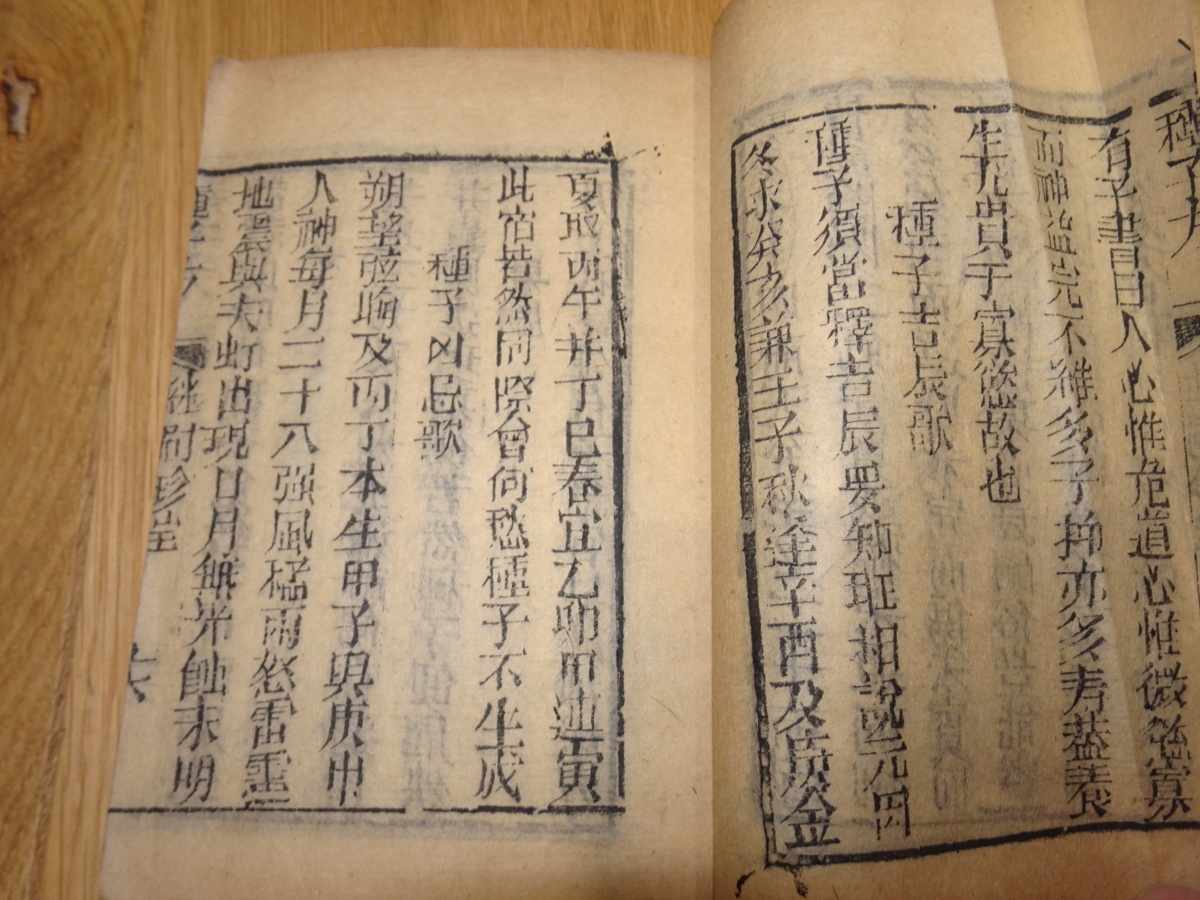 種子方
有子書曰人心惟危道心惟微慾寡
而神益完不維多子抑亦多壽蓋養
生尤貴于寡慾故也
種子吉辰歌
種子須當擇吉辰要知旺相說元因
冬求癸亥兼壬子秋逢辛酉及庚金
夏取丙午并丁巳春宜乙卯甲逋寅
此宿若然同際會何愁種子不生成
種子凶忌歌
朔望弦晦及丙丁本生甲子與庚申
人神每月二十八强風猛雨怒雷霆
地震與夫虹出現日月無光蝕未明
種子方
繼嗣珍寶
六